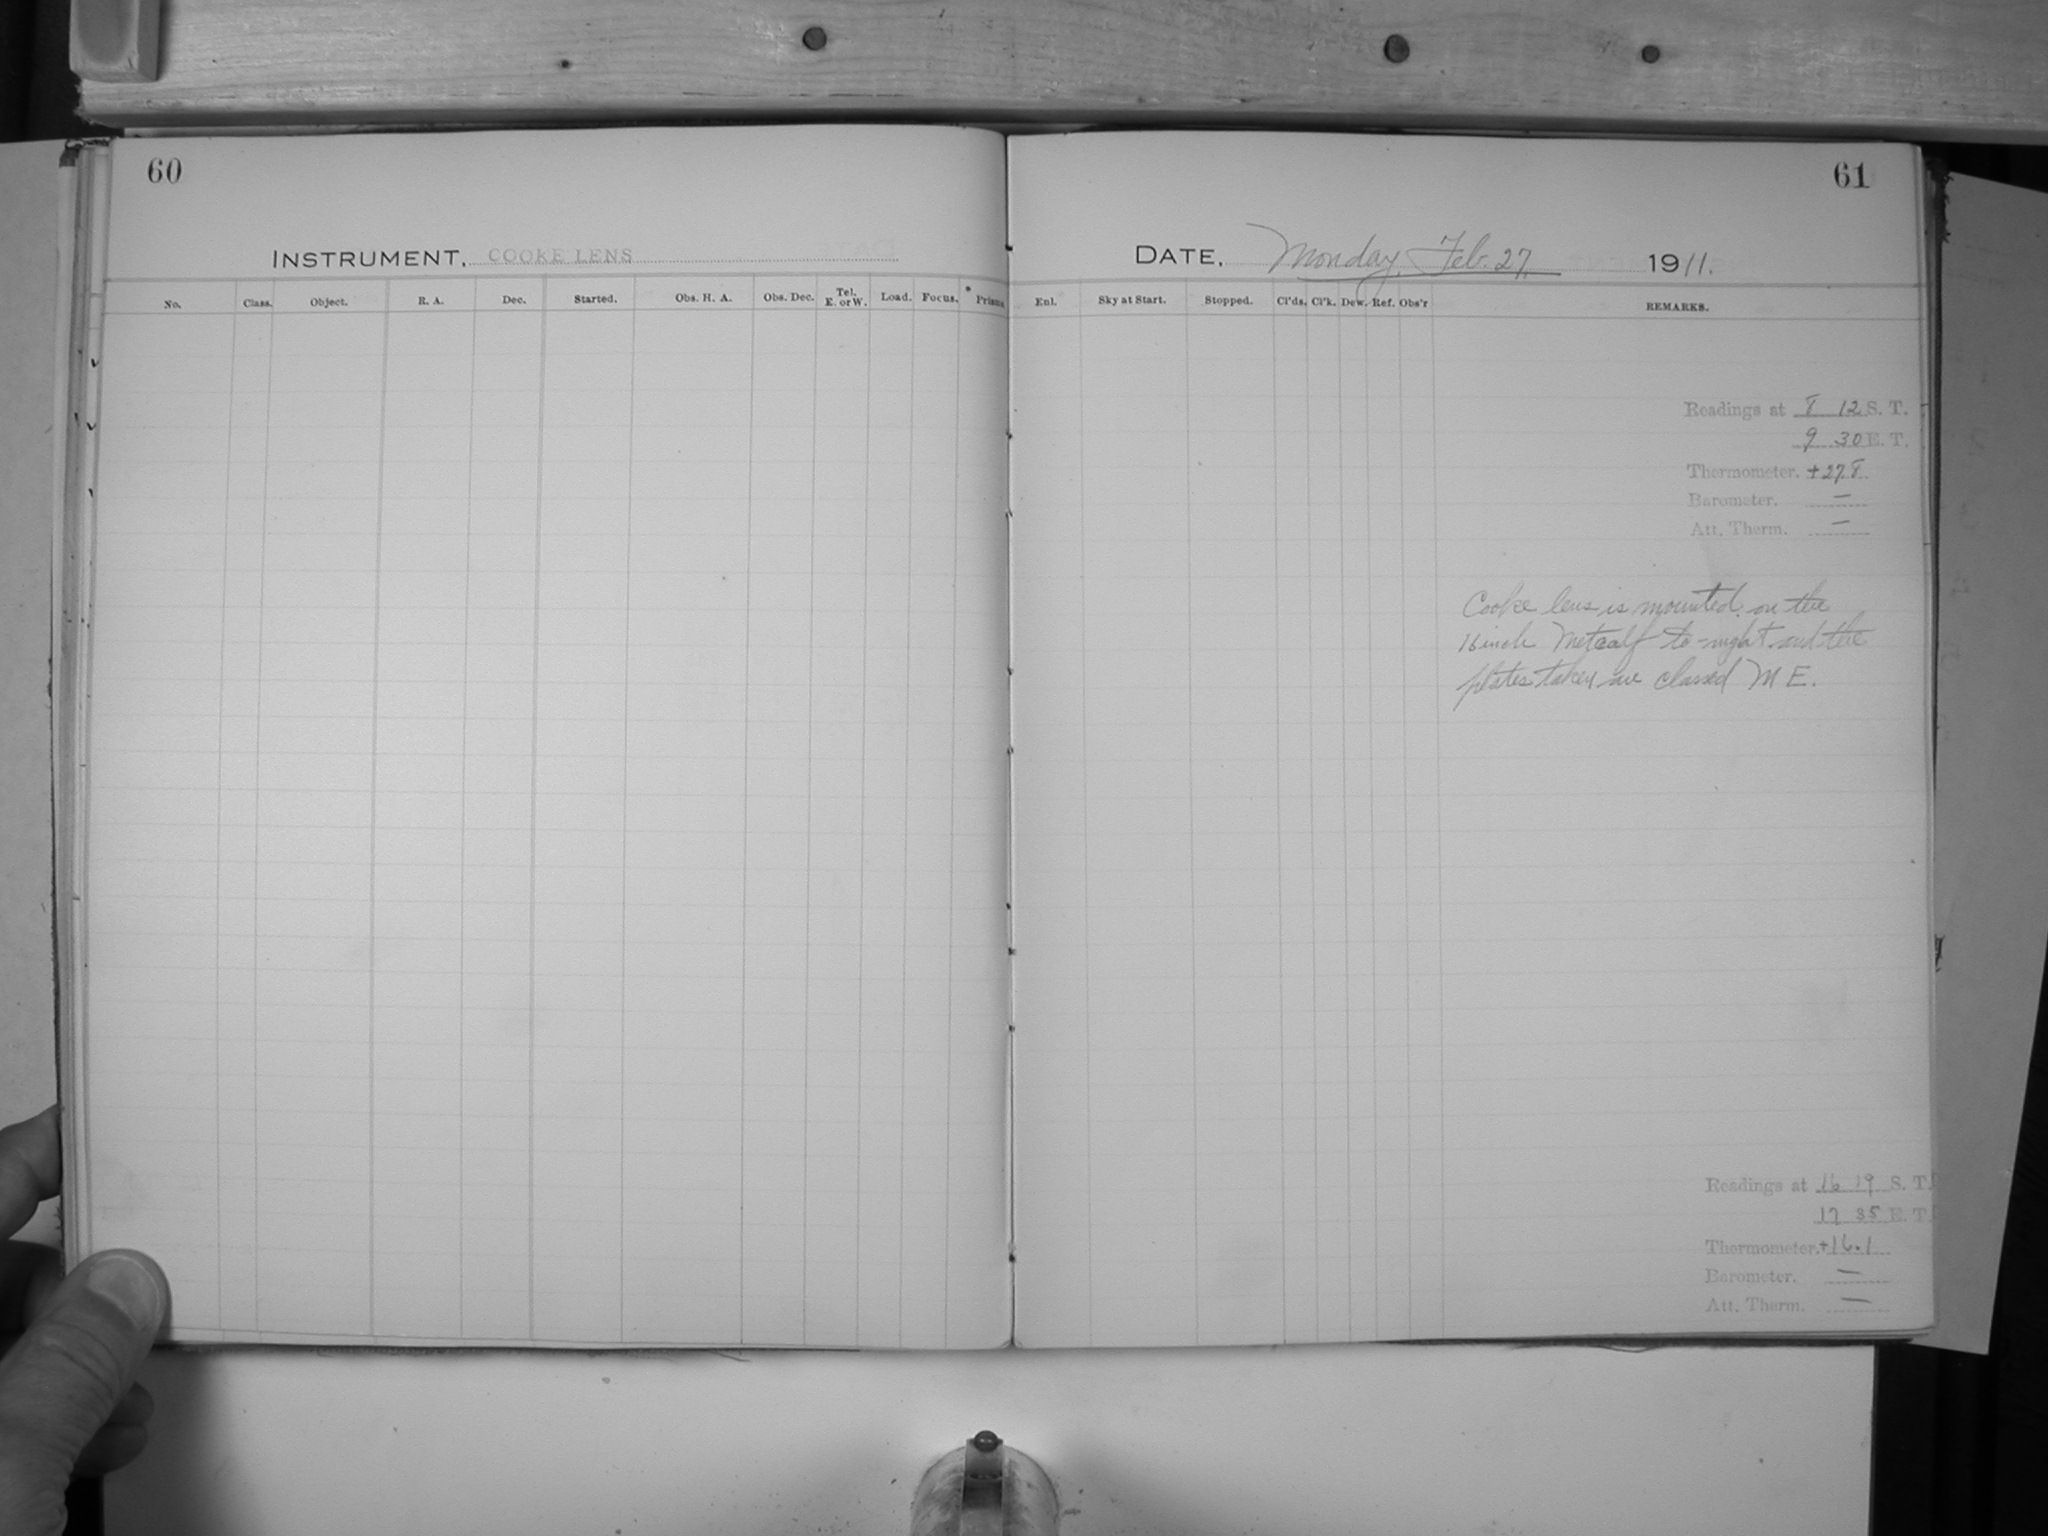 60
INSTRUMENT, COOKE LENS
No. Class. Object. R. A. Dec. Started. Obs. H. A. Obs. Dec. Tel. E. or W. Load. Focus. Prisms
61
DATE, Monday, Feb. 27, 1911.
Enl. Sky at Start. Stopped. Cl'ds. Cl'k. Dew. Ref. Obs'r REMARKS.
Readings at 8 12 S. T.
9 30 E. T.
Thermometer. +27.8
Barometer. —
Att. Therm. —
Cooke lens is mounted on the
16 inch Metcalf to-night and the
plates taken are classed M E.
Readings at 16 19 S. T.
17 35 E. T.
Thermometer. +16.1
Barometer. —
Att. Therm. —